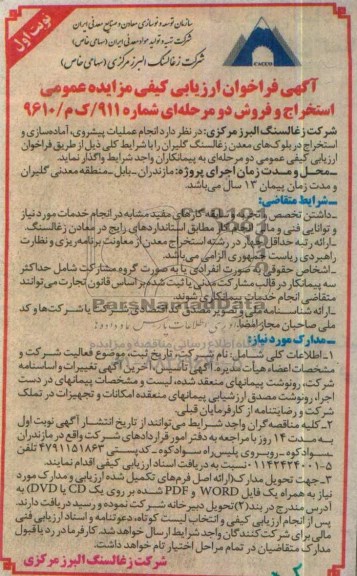 نوبت اول
سازمان توسعه و نوسازی معادن و صنایع معدنی ایران
شرکت تهیه و تولید مواد معدنی ایران (سهامی خاص)
شرکت زغالسنگ البرز مرکزی (سهامی خاص)
آگهی فراخوان ارزیابی کیفی مزایده عمومی
استخراج و فروش دو مرحله‌ای شماره ۹۱۱/ک م/۹۶۱۰
شرکت زغالسنگ البرز مرکزی: در نظر دارد انجام عملیات پیشروی، آماده‌سازی و
استخراج در بلوک‌های معدن زغالسنگ گلیران را با شرایط کلی ذیل از طریق فراخوان
ارزیابی کیفی عمومی دو مرحله‌ای به پیمانکاران واجد شرایط واگذار نماید.
ـ محل و مدت زمان اجرای پروژه: مازندران ـ بابل ـ منطقه معدنی گلیران
و مدت زمان پیمان ۱۳ سال می‌باشد.
ـ شرایط متقاضی:
ـ داشتن تخصص و سابقه کارهای مفید مشابه در انجام خدمات مورد نیاز
و توانایی فنی و مالی مطابق استانداردهای رایج در معادن زغالسنگ.
ـ ارائه رتبه حداقل چهار در رشته استخراج معدن از معاونت برنامه‌ریزی و نظارت
راهبردی ریاست جمهوری الزامی می‌باشد.
ـ اشخاص حقوقی به صورت انفرادی یا به صورت گروه مشارکت شامل حداکثر
سه پیمانکار در قالب مشارکت مدنی یا ثبت شده بر اساس قانون تجارت می‌توانند
متقاضی انجام خدمات پیمانکاری شوند.
ـ ارائه شناسنامه ملی و تصویر مصدق کد اقتصادی شرکت یا شرکت‌ها و کد
ملی صاحبان مجاز امضا.
ParsNamadData
ـ مدارک مورد نیاز:
۱ـ اطلاعات کلی شامل: نام شرکت، تاریخ ثبت، موضوع فعالیت شرکت و
مشخصات اعضاء هیأت مدیره، آگهی تأسیس، آخرین آگهی تغییرات و اساسنامه
شرکت، رونوشت پیمانهای منعقد شده، لیست و مشخصات پیمانهای در دست
اجرا، رونوشت مصدق ارزشیابی پیمانهای منعقده امکانات و تجهیزات در تملک
شرکت و رضایتنامه از کارفرمایان قبلی.
۲ـ کلیه مناقصه گران واجد شرایط می‌توانند از تاریخ انتشار آگهی نوبت اول
به مدت ۱۴ روز با مراجعه به دفتر امور قراردادهای شرکت واقع در مازندران
ـ سوادکوه ـ روبروی پلیس راه سوادکوه ـ کدپستی ۴۷۹۱۱۵۱۸۶۳ تلفن
۵-۰۱۱۴۲۴۲۴۰۰۱ نسبت به دریافت اسناد ارزیابی کیفی اقدام نمایند.
۳ـ جهت تحویل مدارک (ارائه اصل فرم‌های تکمیل شده ارزیابی و مدارک مورد
نیاز به همراه یک فایل WORD و PDF شده بر روی یک CD یا DVD) به
آدرس مندرج در بند (۲) تحویل دبیرخانه شرکت نموده و رسید دریافت دارند.
پس از انجام ارزیابی کیفی و انتخاب لیست کوتاه، دعوتنامه و اسناد ارزیابی فنی
مالی برای شرکت‌کنندگان واجد شرایط ارسال خواهد شد. کارفرما در رد یا قبول
مدارک متقاضیان در تمام مراحل اختیار تام خواهد داشت.
شرکت زغالسنگ البرز مرکزی